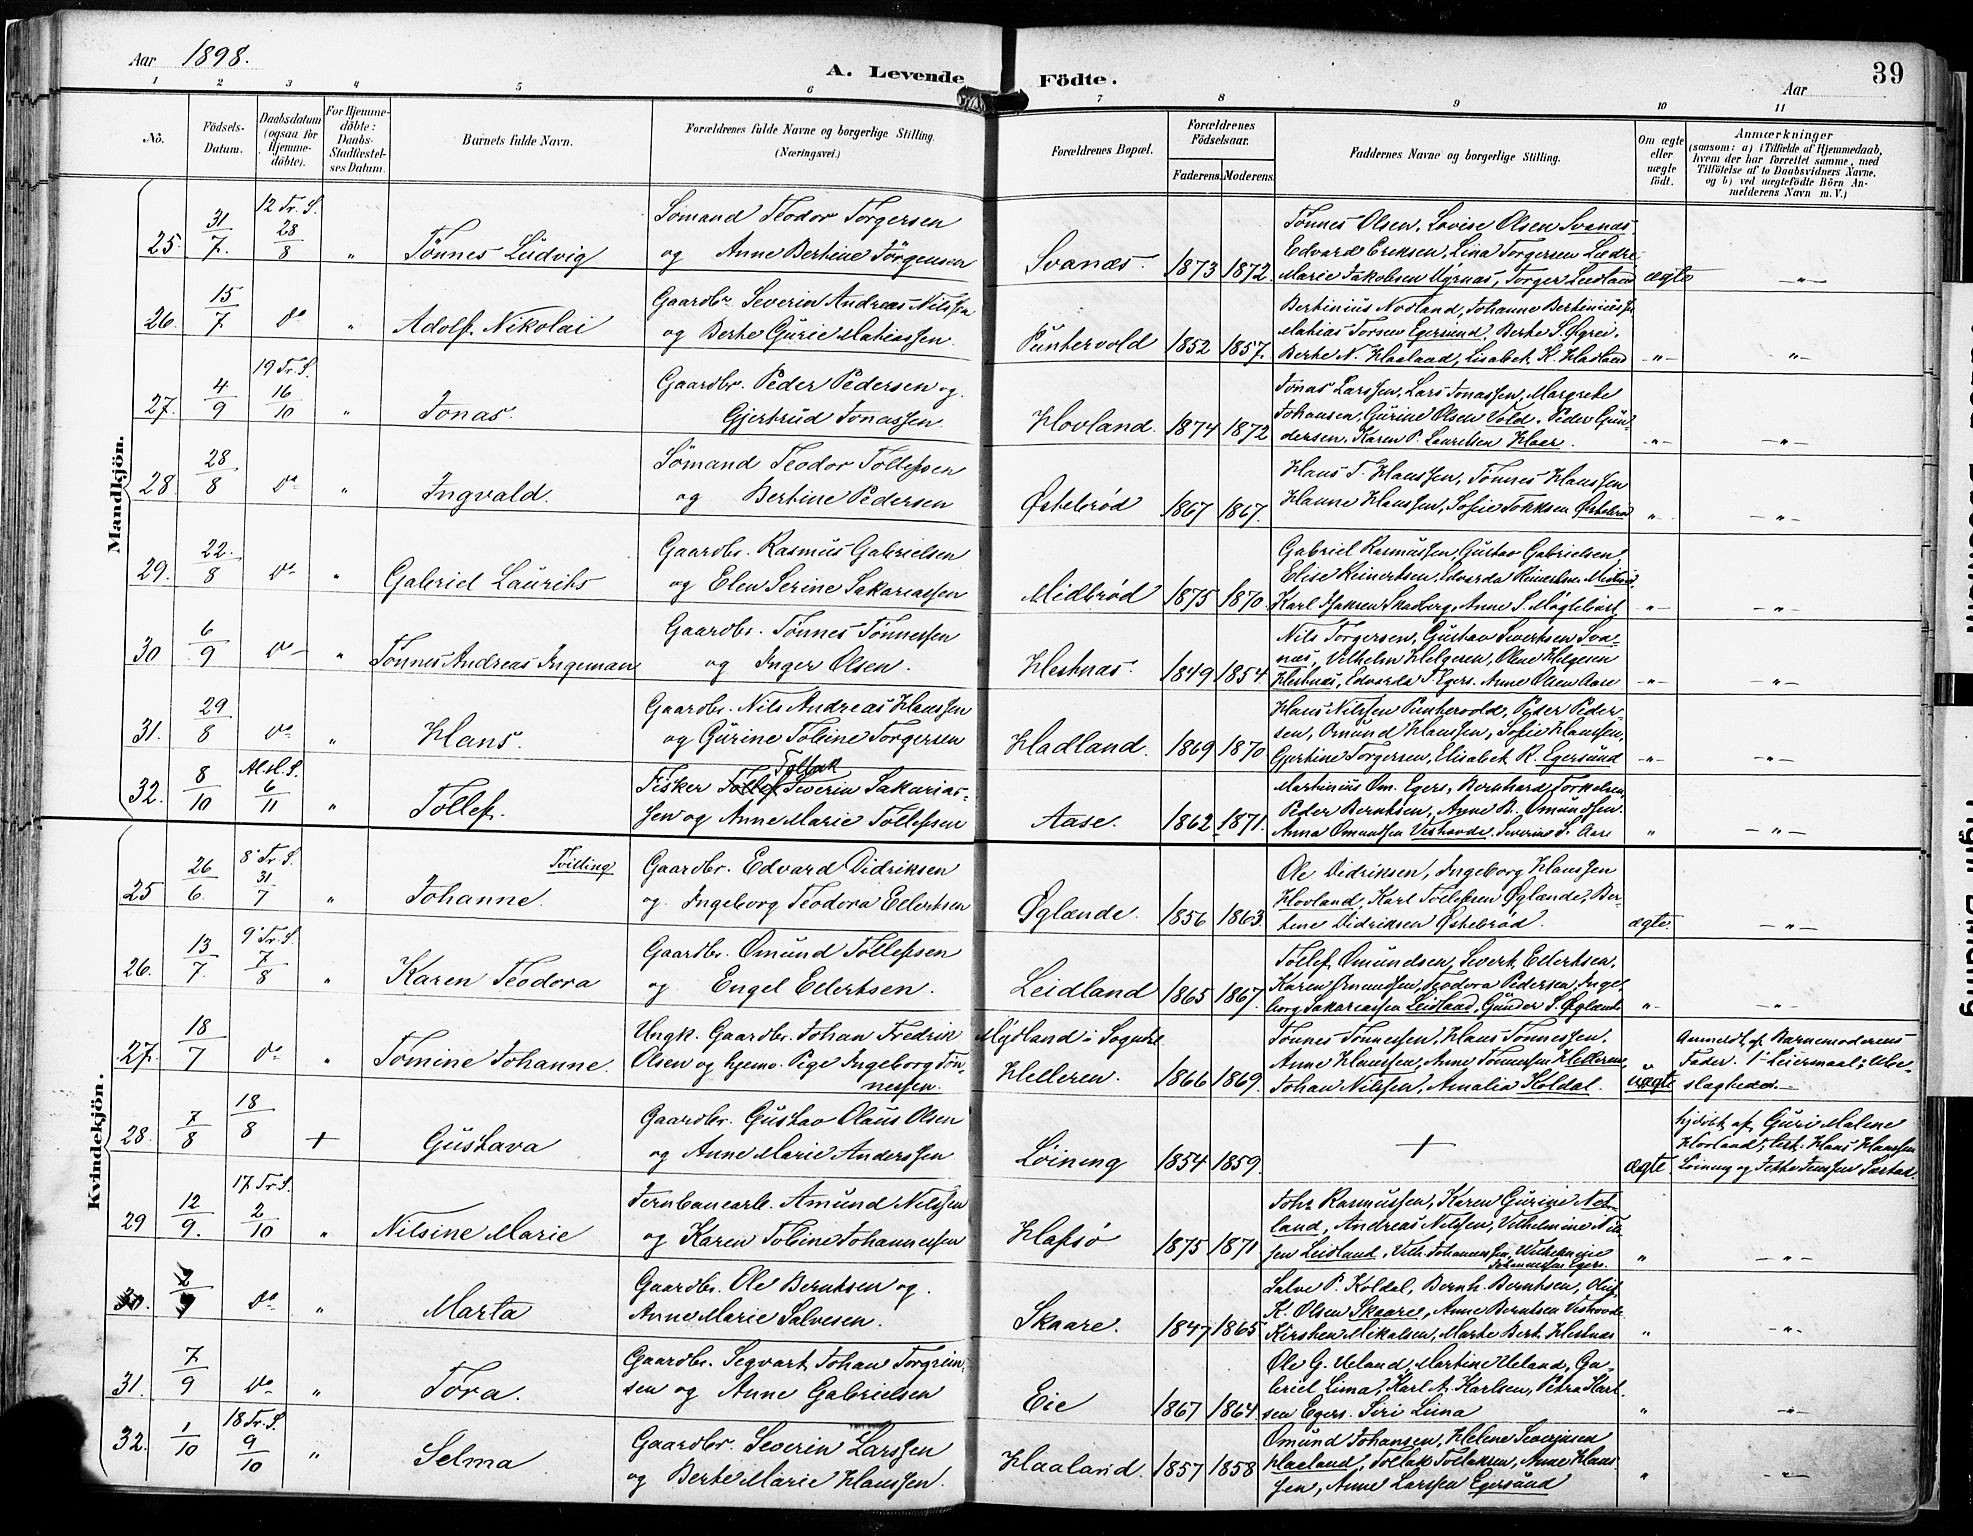 Aar 1898.
A. Levende Födte.
39
Aar
1 2 3 4 5 6 7 8 9 10 11
No.
Födsels-Datum.
Daabsdatum (ogsaa for Hjemmedöbte).
For Hjemmedöbte: Daabs-Stadfæstelses Datum.
Barnets fulde Navn.
Forældrenes fulde Navne og borgerlige Stilling. (Næringsvei.)
Forældrenes Bopæl.
Forældrenes Födselsaar.
Faderens. Moderens.
Faddernes Navne og borgerlige Stilling.
Om ægte eller uægte födt.
Anmærkninger
(saasom: a) i Tilfælde af Hjemmedaab, hvem der har forrettet samme, med Tilföielse af to Daabsvidners Navne, og b) ved uægtefödte Börn Anmelderens Navn m. V.)
Mandkjön.
25. 31/7. 12 Tr. S. 28/8 „ Tønnes Ludvig
Sømand Teodor Torgersen
og Anne Bertine Jörgensen
Svanæs. 1873 1872.
Tønnes Olsen, Lovise Olsen Svanæs
Edvard Eriksen, Lina Torgersen
Marie Jakobsen
ægte —„—
26. 15/7 do „ Adolf Nikolai
Gaardbr. Severin Andreas Nilssen
og Berte Gurie Matiassen.
Puntervold 1852 1857.
Bertinius Nodland, Johanne
Matias Torsen Egersund, Berte S. Øgrei,
Berte N. Haaland, Lisabet K. Hadland
—„— „
27. 4/9 19 Tr. S. 16/10 „ Jonas.
Gaardbr. Peder Pedersen og
Gjertrud Jonassen
Hovland. 1874 1872
Jonas Larssen, Lars Jonassen, Margrete
Johansen, Gurine Olsen Vold. Peder Gun-
dersen, Karen P. Lauretsen Haar.
—„— —„—
28 28/8 do „ Ingvald.
Sømand Teodor Tollefsen
og Bertine Pedersen
Østebrød 1867 1867.
Hans T. Hanssen, Tønnes Hanssen
Hanne Hanssen, Sofie Østebrø
„ —„—
29. 22./8 do „ Gabriel Laurits
Gaardbr. Rasmus Gabrielsen
og Elen Serine Sakariassen
Midbrød 1875 1870.
Gabriel Rasmussen, Gustav Gabrielsen
Elise Reinertsen, Edvarda Reinertsen
Karl Isaksen Skadberg, Anne S.
—„— —„—
30 6/9 do „ Tønnes Andreas Ingeman
Gaardbr. Tønnes Tønnessen
og Inger Olsen.
Hestnæs. 1849 1854
Nils Torgersen, Gustav Sivertsen Sva-
næs, Vilhelm Helgesen, Olene Helgesen
Hestnæs, Edvarda T. Egers. Anne Olsen Aase
—„— —„—
31. 29/8 do „ Hans.
Gaardbr. Nils Andreas Hanssen
og Gurine Tobine Torgersen
Hadland. 1869 1870
Hans Nilssen Puntervold, Peder Peder-
sen, Omund Hanssen, Sofie Hanssen,
Gjertine Torgersen, Elisabet R. Egersund
—„— —„—
32. 8/10 6/11 „ Tollef.
Tollak
Fisker Tollef Severin Sakarias-
sen og Anne Marie Tollefssen
Aase. 1862 1871.
Martinius Om. Egers, Bernhard Torkelsen,
Peder Berntsen, Anne B. Omundsen.
Anna Omundsen Vestvode. Severine S. Aase
„ —„—
Kvindekjön.
25 26/6. 8 Tr. S. 31/7 „ Johanne. Tvilling
Gaardbr. Edvard Didriksen
og Ingeborg Teodora Eilertsen
Øglænde. 1856 1863.
Ole Didriksen, Ingeborg Hanssen
Hovland, Karl Tollefsen Øglænde, Ber-
tine Didriksen Østebrød.
ægte. —„—
26. 13/7. 9 Tr. S. 7/8 „ Karen Teodora
Gaardbr. Omund Tollefsen
og Engel Eilertsen.
Leidland 1865 1867.
Tollef Omundsen, Sivert Eilertsen,
Karen Omundsen, Teodora Pedersen, Inge-
borg Sakariassen Leidland, Gunder S. Øglænde
„ —„—
27. 18/7 do „ Tomine Johanne.
Ungk. Gaardbr. Johan Fredrik
Olsen og hjemv. Pige Ingeborg Tøn-
nessen.
Mydland i Sogndal
Helleren. 1866 1869.
Tønnes Tønnessen, Hans Tønnessen,
Anne Hanssen, Anne Tønnessen Helleren,
Johan Nilssen, Amalia Koldal.
uægte
Anmeldt af Barnemoderens
Fader. 1ste Leiermaal; Ube-
slægtede.—
28. 7/8 18/8 + Gustava
Gaardbr. Gustav Olaus Olsen
og Anne Marie Anderssen
Løining 1854 1859.
+
ægte
hjdøbt af Guri Malene
Hovland; Test: Hans Hanssen
Løining og
29 12/9. 17 Tr. S. 2/10 „ Nilsine Marie
Jernbanearb. Amund Nilssen
og Karen Tobine Johannessen
Hafsø 1875 1871
Johs Rasmussen, Karen Gurine Net-
land, Andreas Nilssen, Vilhelmine Nil-
sen Leidland, Vilh. Johannessen, Wilhelmine
Johannessen Egers.
„ —„—
30. 2/9 do „ Marta
Gaardbr. Ole Berntsen og
Anne Marie Salvesen.
Skaare. 1847 1865
Salve P. Koldal, Bernh. Berntsen,
K. Olsen Skaare, Anne Berntsen Vestvode
Kirsten Mikalsen, Marte Bert. Hestnæs
„ —„—
31. 7/9 do „ Tora.
Gaardbr. Segvart Johan Torgrim-
sen og Anne Gabrielsen
Eie 1867 1864
Ole G. Ueland, Martine Ueland, Ga-
briel Lima, Karl A. Karlsen, Petra Karl-
sen Egers. Siri Lima
„ —„—
32. 1/10 18 Tr. S. 9/10 „ Selma
Gaardbr. Severin Larssen
og Berte Marie Hanssen.
Haaland. 1857 1858
Omund Johansen, Helene Severinsen
Haaland, Tollak Tollaksen, Anne Hans-
sen, Anne Larssen Egersund
„ —„—